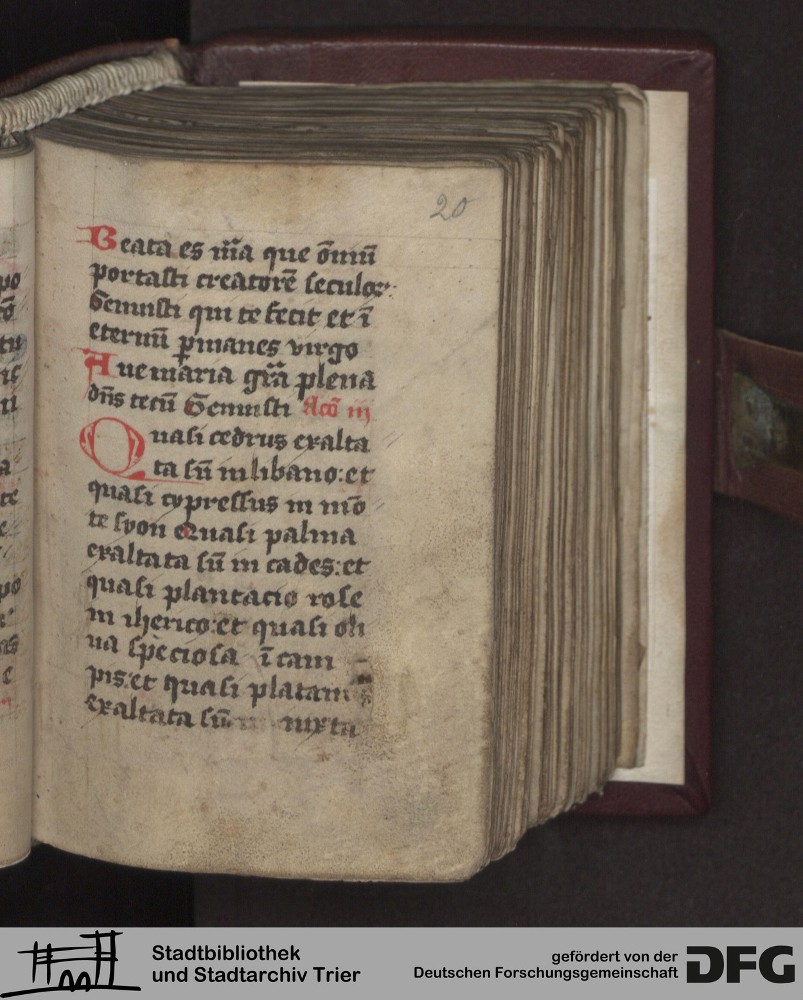 20
Beata es m̄a que om̄niū
portasti creatorē seculoꝝ
Genuisti qui te fecit et ī
eternū ꝑmanes virgo
Aue maria gr̄a plena
dn̄s tecū Genuisti Lcō iij
Quasi cedrus exalta
ta sū in libano: et
quasi cypressus in mō
te syon Quasi palma
exaltata sū in cades: et
quasi plantacio rose
in iherico: et quasi oli
ua speciosa ī cam
pis: et quasi platan
exaltata sū iuxta
Stadtbibliothek
und Stadtarchiv Trier
gefördert von der
Deutschen Forschungsgemeinschaft
DFG